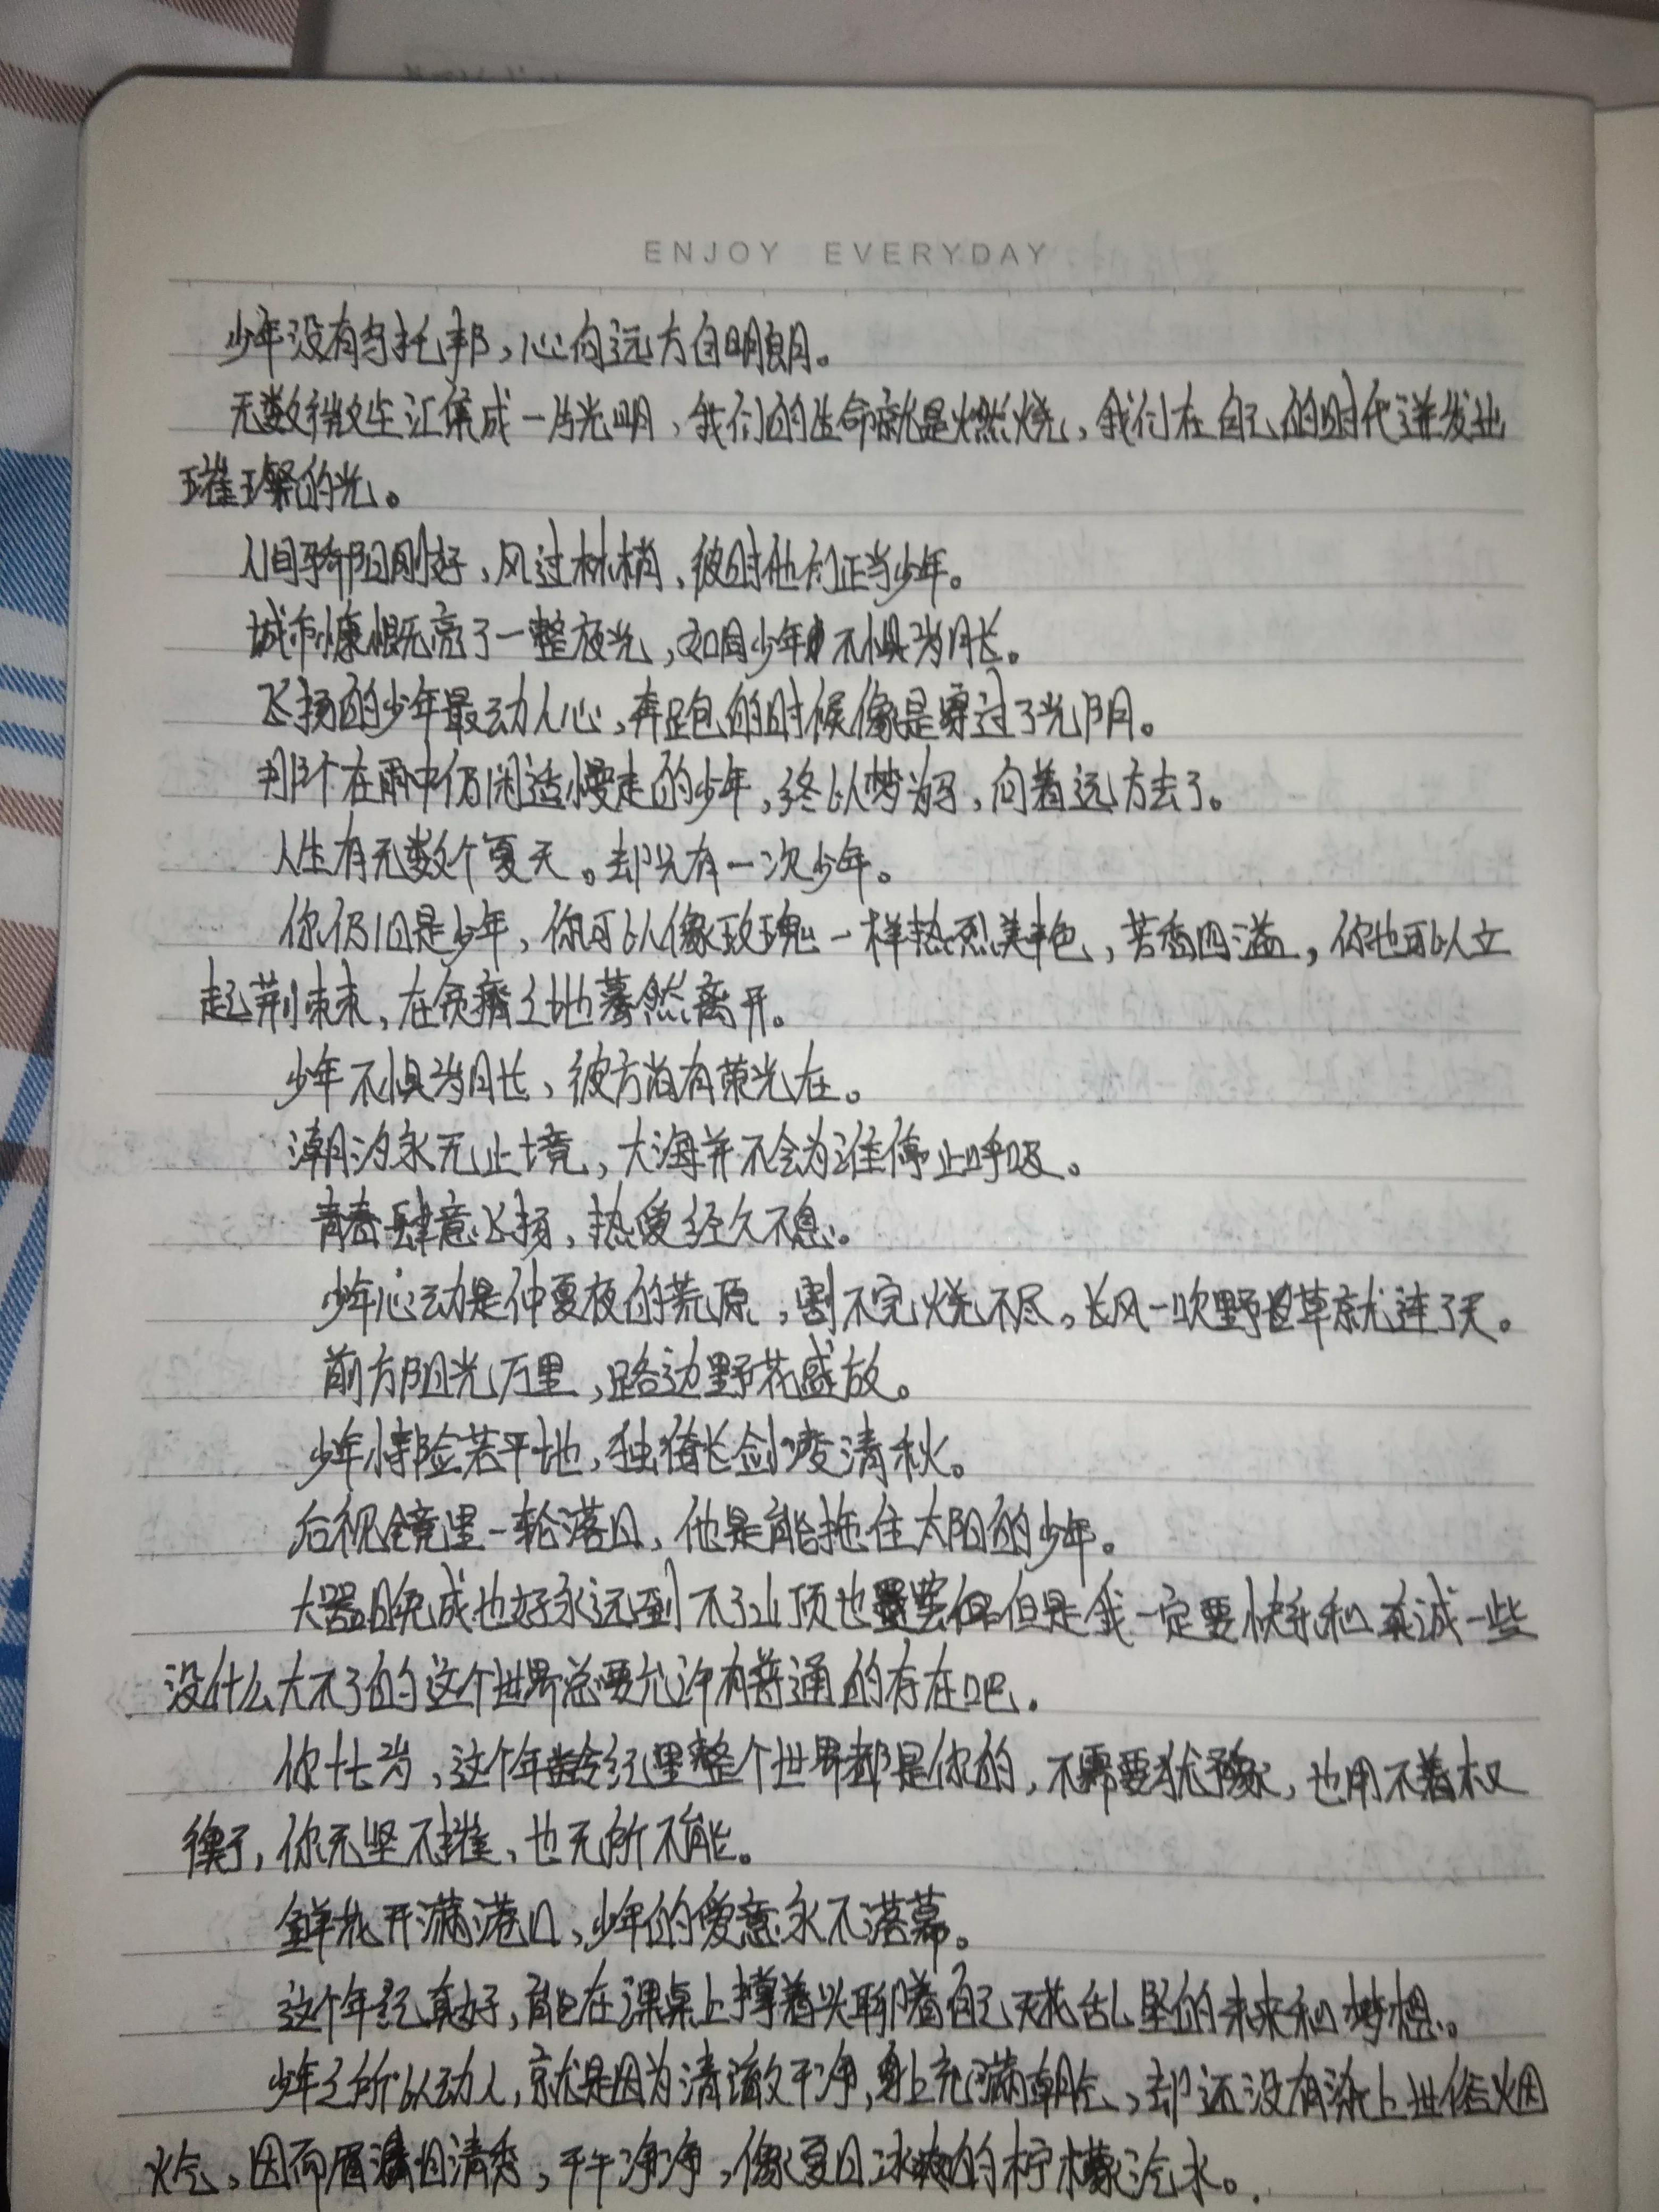 ENJOY EVERYDAY
少年没有乌托邦，心向远方自明朗。
无数微尘汇集成一片光明，我们的生命就是燃烧，我们在自己的时代迸发出
璀璨的光。
人间骄阳刚好，风过林梢，彼时他们正当少年。
城市慷慨亮了一整夜光，如同少年不惧岁月长。
飞扬的少年最动人心，奔跑的时候像是穿过了光阴。
那个在雨中仍闲适慢走的少年，终以梦为马，向着远方去了。
人生有无数个夏天。却只有一次少年。
你仍旧是少年，你可以像玫瑰一样热烈美艳，芳香四溢，你也可以立
起荆棘，在贫瘠土地蓦然离开。
少年不惧岁月长，彼方尚有荣光在。
潮汐永无止境，大海并不会为谁停止呼吸。
青春肆意飞扬，热爱经久不息。
少年心动是仲夏夜的荒原，割不完烧不尽。长风一吹野草就连了天。
前方阳光万里，路边野花盛放。
少年恃险若平地，独倚长剑凌清秋。
后视镜里一轮落日，他是能拖住太阳的少年。
大器晚成也好永远到不了山顶也罢但是我一定要快乐和真诚一些
没什么大不了的这个世界总要允许有普通的存在吧.
你十七岁，这个年龄纪里整个世界都是你的，不需要犹豫，也用不着权
衡，你无坚不摧，也无所不能。
鲜花开满港口，少年的爱意永不落幕。
这个年纪真好，能在课桌上撑着头聊着自己天花乱坠的未来和梦想。
少年之所以动人，就是因为清澈干净，身上充满朝气，却还没有染上世俗烟
火气，因而眉清目秀，干干净净，像夏日冰爽的柠檬汽水。